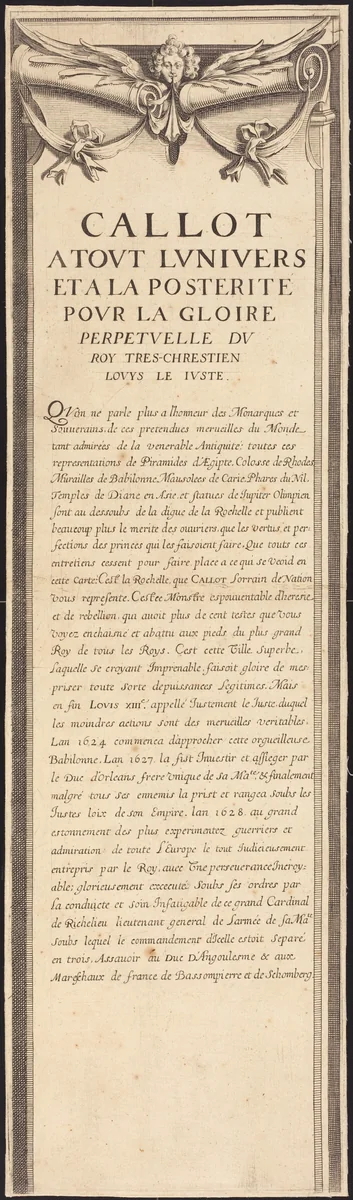 CALLOT
ATOVT LVNIVERS
ET A LA POSTERITE
POVR LA GLOIRE
PERPETVELLE DV
ROY TRES-CHRESTIEN
LOVYS LE IVSTE.
QVon ne parle plus a lhonneur des Monarques et
Souuerains, de ces pretendues merueilles du Monde
tant admirées de la venerable Antiquité: toutes ces
representations de Piramides d'Ægipte. Colosse de Rhodes,
Murailles de Babilonne, Mausolees de Carie, Phares du Nil.
Temples de Diane en Asie et statues de Jupiter Olimpien
sont au dessoubs de la digue de la Rochelle et publient
beaucoup plus le merite des ouuriers, que les vertus, et per-
fections des princes qui les faisoient faire. Que touts ces
entretiens cessent pour faire place a ce qui se veoid en
cette Carte: Cest la Rochelle, que CALLOT Lorrain de Nation
vous represente. Cest ce Monstre espouuentable d'heresie
et de rebellion, qui auoit plus de cent testes que vous
voyez enchaisné et abattu aux pieds du plus grand
Roy de tous les Roys. Cest cette Ville superbe,
Laquelle se croyant Imprenable, faisoit gloire de mes-
priser toute sorte de puissances Légitimes. Mais
en fin LOVIS XIIIe. appellé Justement le Juste, duquel
les moindres actions sont des merueilles veritables.
Lan 1624 commenca d'approcher cette orgueilleuse
Babilonne. Lan 1627. la fist Inuestir et assieger par
le Duc d'orleans, frere vnique de sa Mate. & finalement
malgré tous ses ennemis la prist et rangea soubs les
Justes loix de son Empire, lan 1628. au grand
estonnement des plus experimentez guerriers et
admiration de toute L'Europe le tout Judicieusement
entrepris par le Roy, auec Vne perseuerance Incroy-
able; glorieusement execcuté Soubs ses ordres par
La conduicte et soin Infatigable de ce grand Cardinal
de Richelieu lieutenant general de Larmée de sa Mate
Soubs lequel le commandement d'Icelle estoit Separé
en trois. Assauoir au Duc D'Angoulesme & aux
Mareschaux de france de Bassompierre et de Schomberg